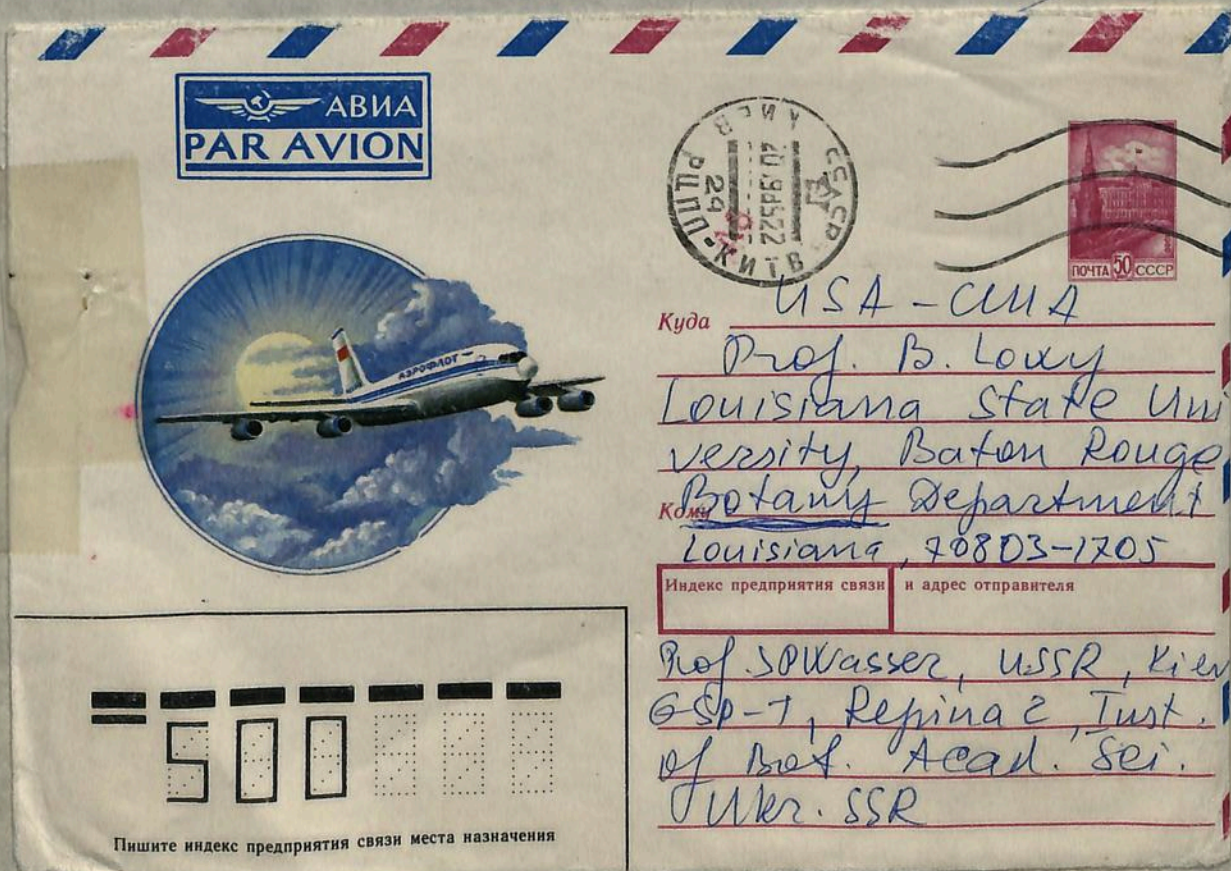 АВИА
PAR AVION
КИЕВ СССР
РЦПП-КИТВ
24
АЭРОФЛОТ
ПОЧТА 50 СССР
Куда USA - США
Prof. B. Lowy
Louisiana State Uni
versity, Baton Rouge
Кому Botany Department
Louisiana, 70803-1705
Индекс предприятия связи и адрес отправителя
Prof. SPWasser, USSR, Kiev
GSP-1, Repina 2, Inst.
of Bot. Acad. Sci.
Ukr. SSR
500
Пишите индекс предприятия связи места назначения